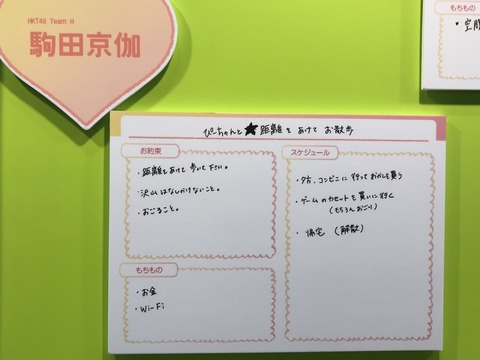 HKT48 Team H
駒田京伽
もちもの
・空
ぴーちゃんと★距離をあけてお散歩
お約束
・距離をあけて歩いて下さい。
・沢山はなしかけないこと。
・おごること。
もちもの
・お金
・Wi-Fi
スケジュール
・夕方、コンビニに行っておかしを買う
・ゲームのカセットを買いに行く
(もちろんおごり)
・帰宅(解散)